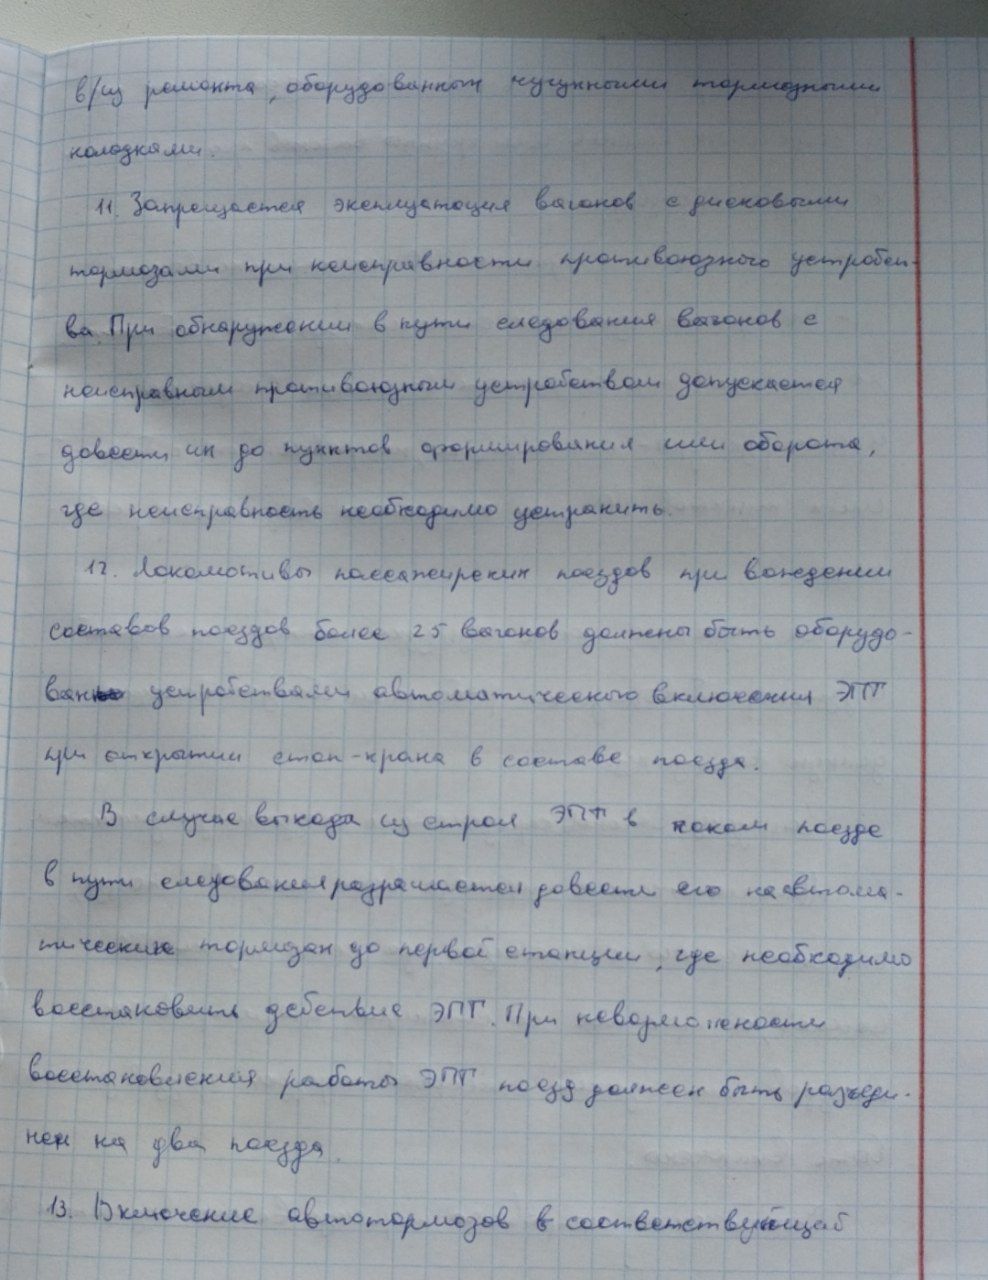 в/из ремонта, оборудованных чугунными тормозными
колодками.
11. Запрещается эксплуатация вагонов с дисковыми
тормозами при неисправности противоюзного устройст-
ва. При обнаружении в пути следования вагонов с
неисправным противоюзным устройством допускается
довести их до пунктов формирования или оборота,
где неисправность необходимо устранить.
12. Локомотивы пассажирских поездов при вождении
составов поездов более 25 вагонов должны быть оборудо-
ваны устройствами автоматического включения ЭПТ
при открытии стоп-крана в составе поезда.
В случае выхода из строя ЭПТ в таком поезде
в пути следования разрешается довести его на автома-
тических тормозах до первой станции, где необходимо
восстановить действие ЭПТ. При невозможности
восстановления работы ЭПТ поезд должен быть разъеди-
нен на два поезда.
13. Включение автотормозов в соответствующий